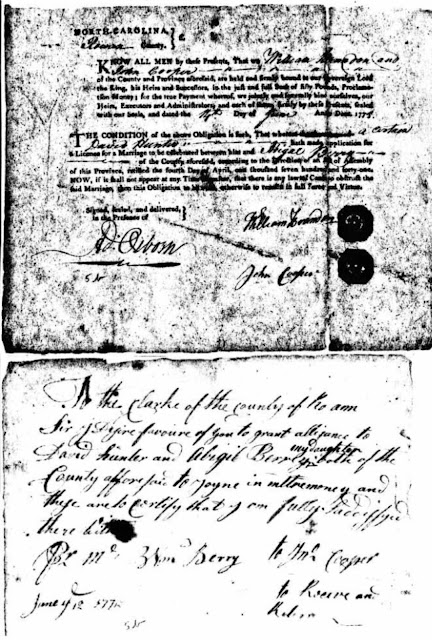 NORTH-CAROLINA,
County.
KNOW ALL MEN by these Presents, That we William and
John Cooper
of the County and Province aforesaid, are held and firmly bound to our Sovereign Lord
the King, his Heirs and Successors, in the just and full Sum of fifty Pounds, Proclama-
tion Money; for the true Payment whereof, we jointly and severally bind ourselves, our
Heirs, Executors and Administrators, and each of them, firmly by these Presents, sealed
with our Seals, and dated the Day of June Anno Dom. 177
THE CONDITION of the above Obligation is such, That whereas a certain
David Hunter hath made application for
a License for a Marriage to be celebrated between him and Abigal Berry
of the County aforesaid, according to the Directions of an Act of Assembly
of this Province, ratified the fourth Day of April, one thousand seven hundred and forty-one.
NOW, if it shall not appear at any Time hereafter, that there is any lawful Cause to obstruct the
said Marriage, then this Obligation to be void, otherwise to remain in full Force and Virtue.
Signed, sealed, and delivered,
in the Presence of
William
Ad. Osborn
John Cooper
To the Clarke of the county of Ro ann
Sir I Desire favoure of you to grant
my daughter
David Hunter and Abigel Berry both of the
County afforesaid to Joyne in and
these are to certify that I am fully
there
Berry to Jno Cooper
to Reeve and
June ye 12 177